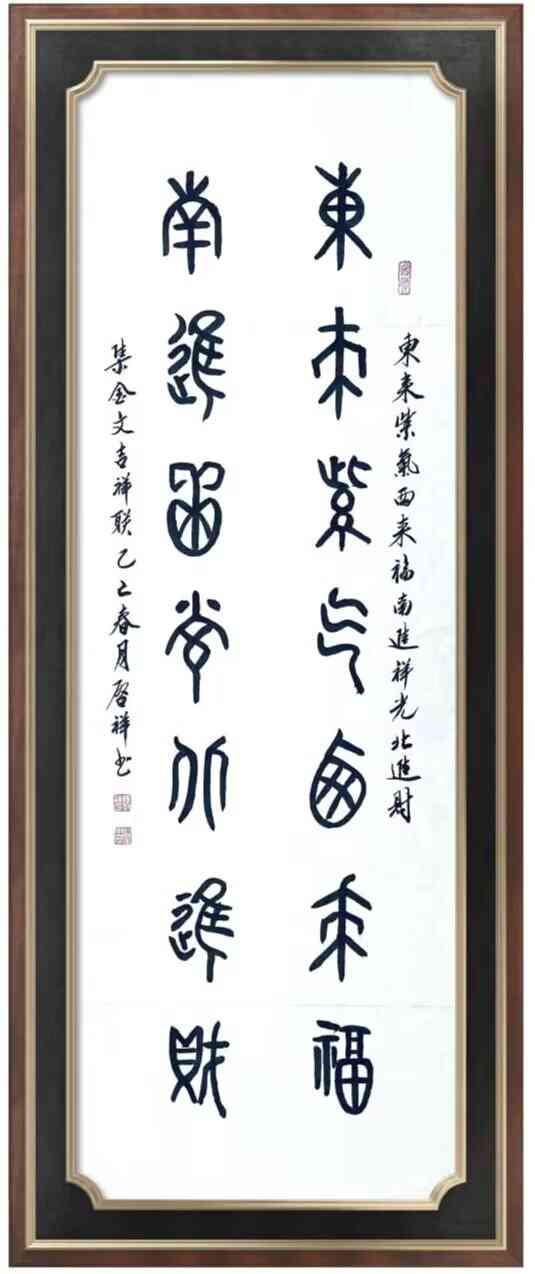 東来紫氣西来福南進祥光北進財
東来紫气西来福
南進祥光北進財
集金文吉祥联乙巳春月启祥书